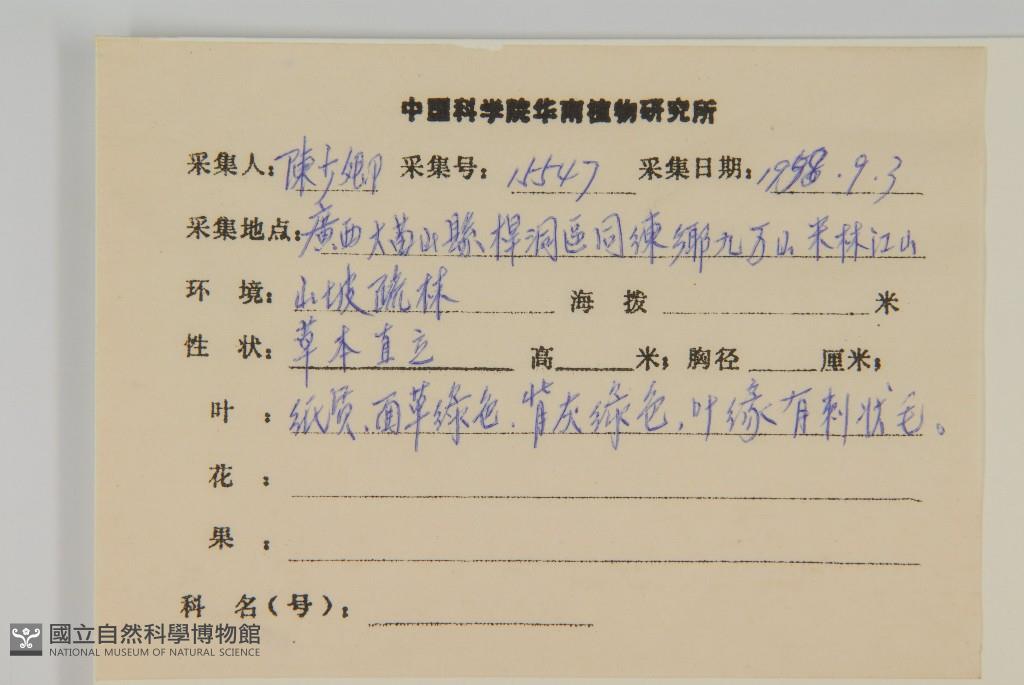 中国科学院华南植物研究所
采集人：陳少卿 采集号：15547 采集日期：1958.9.3
采集地点：廣西大苗山縣桿洞區同練鄉九万山米林江山
环 境：山坡疏林 海 拨 米
性 状：草本直立 高 米；胸径 厘米；
叶 ：纸质、面草綠色、背灰綠色，叶缘有刺状毛。
花 ：
果 ：
科 名（号）：
國立自然科學博物館
NATIONAL MUSEUM OF NATURAL SCIENCE